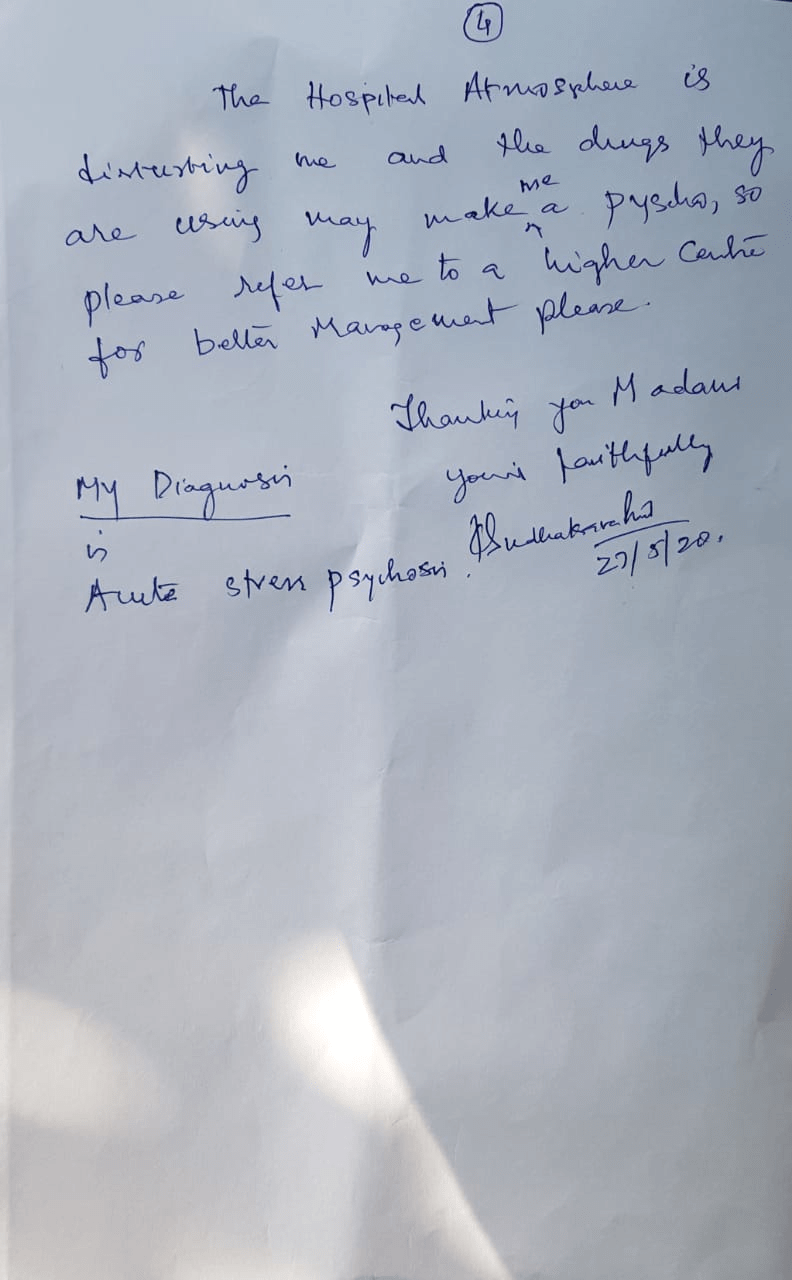 4
The Hospital Atmosphere is
disturbing me and the drugs they
are using may make me a pyscho, so
please refer me to a higher Centre
for better Management please.
Thanking you Madam
My Diagnosis
yours faithfully
is
Acute stress psychosis.
27/5/20.